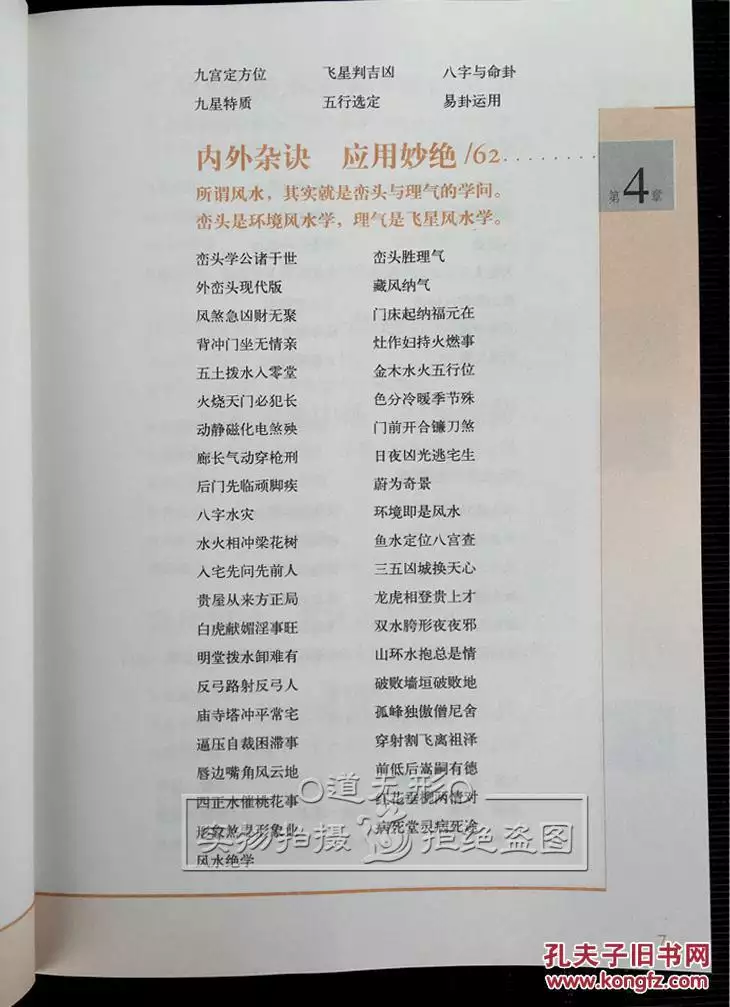 九宫定方位 飞星判吉凶 八字与命卦
九星特质 五行选定 易卦运用
内外杂诀 应用妙绝 /62
第4章
所谓风水，其实就是峦头与理气的学问。
峦头是环境风水学，理气是飞星风水学。
峦头学公诸于世 峦头胜理气
外峦头现代版 藏风纳气
风煞急凶财无聚 门床起纳福元在
背冲门坐无情亲 灶作妇持火燃事
五土拨水入零堂 金木水火五行位
火烧天门必犯长 色分冷暖季节殊
动静磁化电煞殃 门前开合镰刀煞
廊长气动穿枪刑 日夜凶光逃宅生
后门先临顽脚疾 蔚为奇景
八字水灾 环境即是风水
水火相冲梁花树 鱼水定位八宫查
入宅先问先前人 三五凶城换天心
贵屋从来方正局 龙虎相登贵上才
白虎献媚淫事旺 双水胯形夜夜邪
明堂拨水卸难有 山环水抱总是情
反弓路射反弓人 破败墙垣破败地
庙寺塔冲平常宅 孤峰独傲僧尼舍
逼压自裁困滞事 穿射割飞离祖泽
唇边嘴角风云地 前低后嵩嗣有德
四正水催桃花事 红花垂柳两情对
形煞寻形象业 病死堂灵病死途
风水绝学
道无形
实物拍摄 拒绝盗图
7
孔夫子旧书网
www.kongfz.com